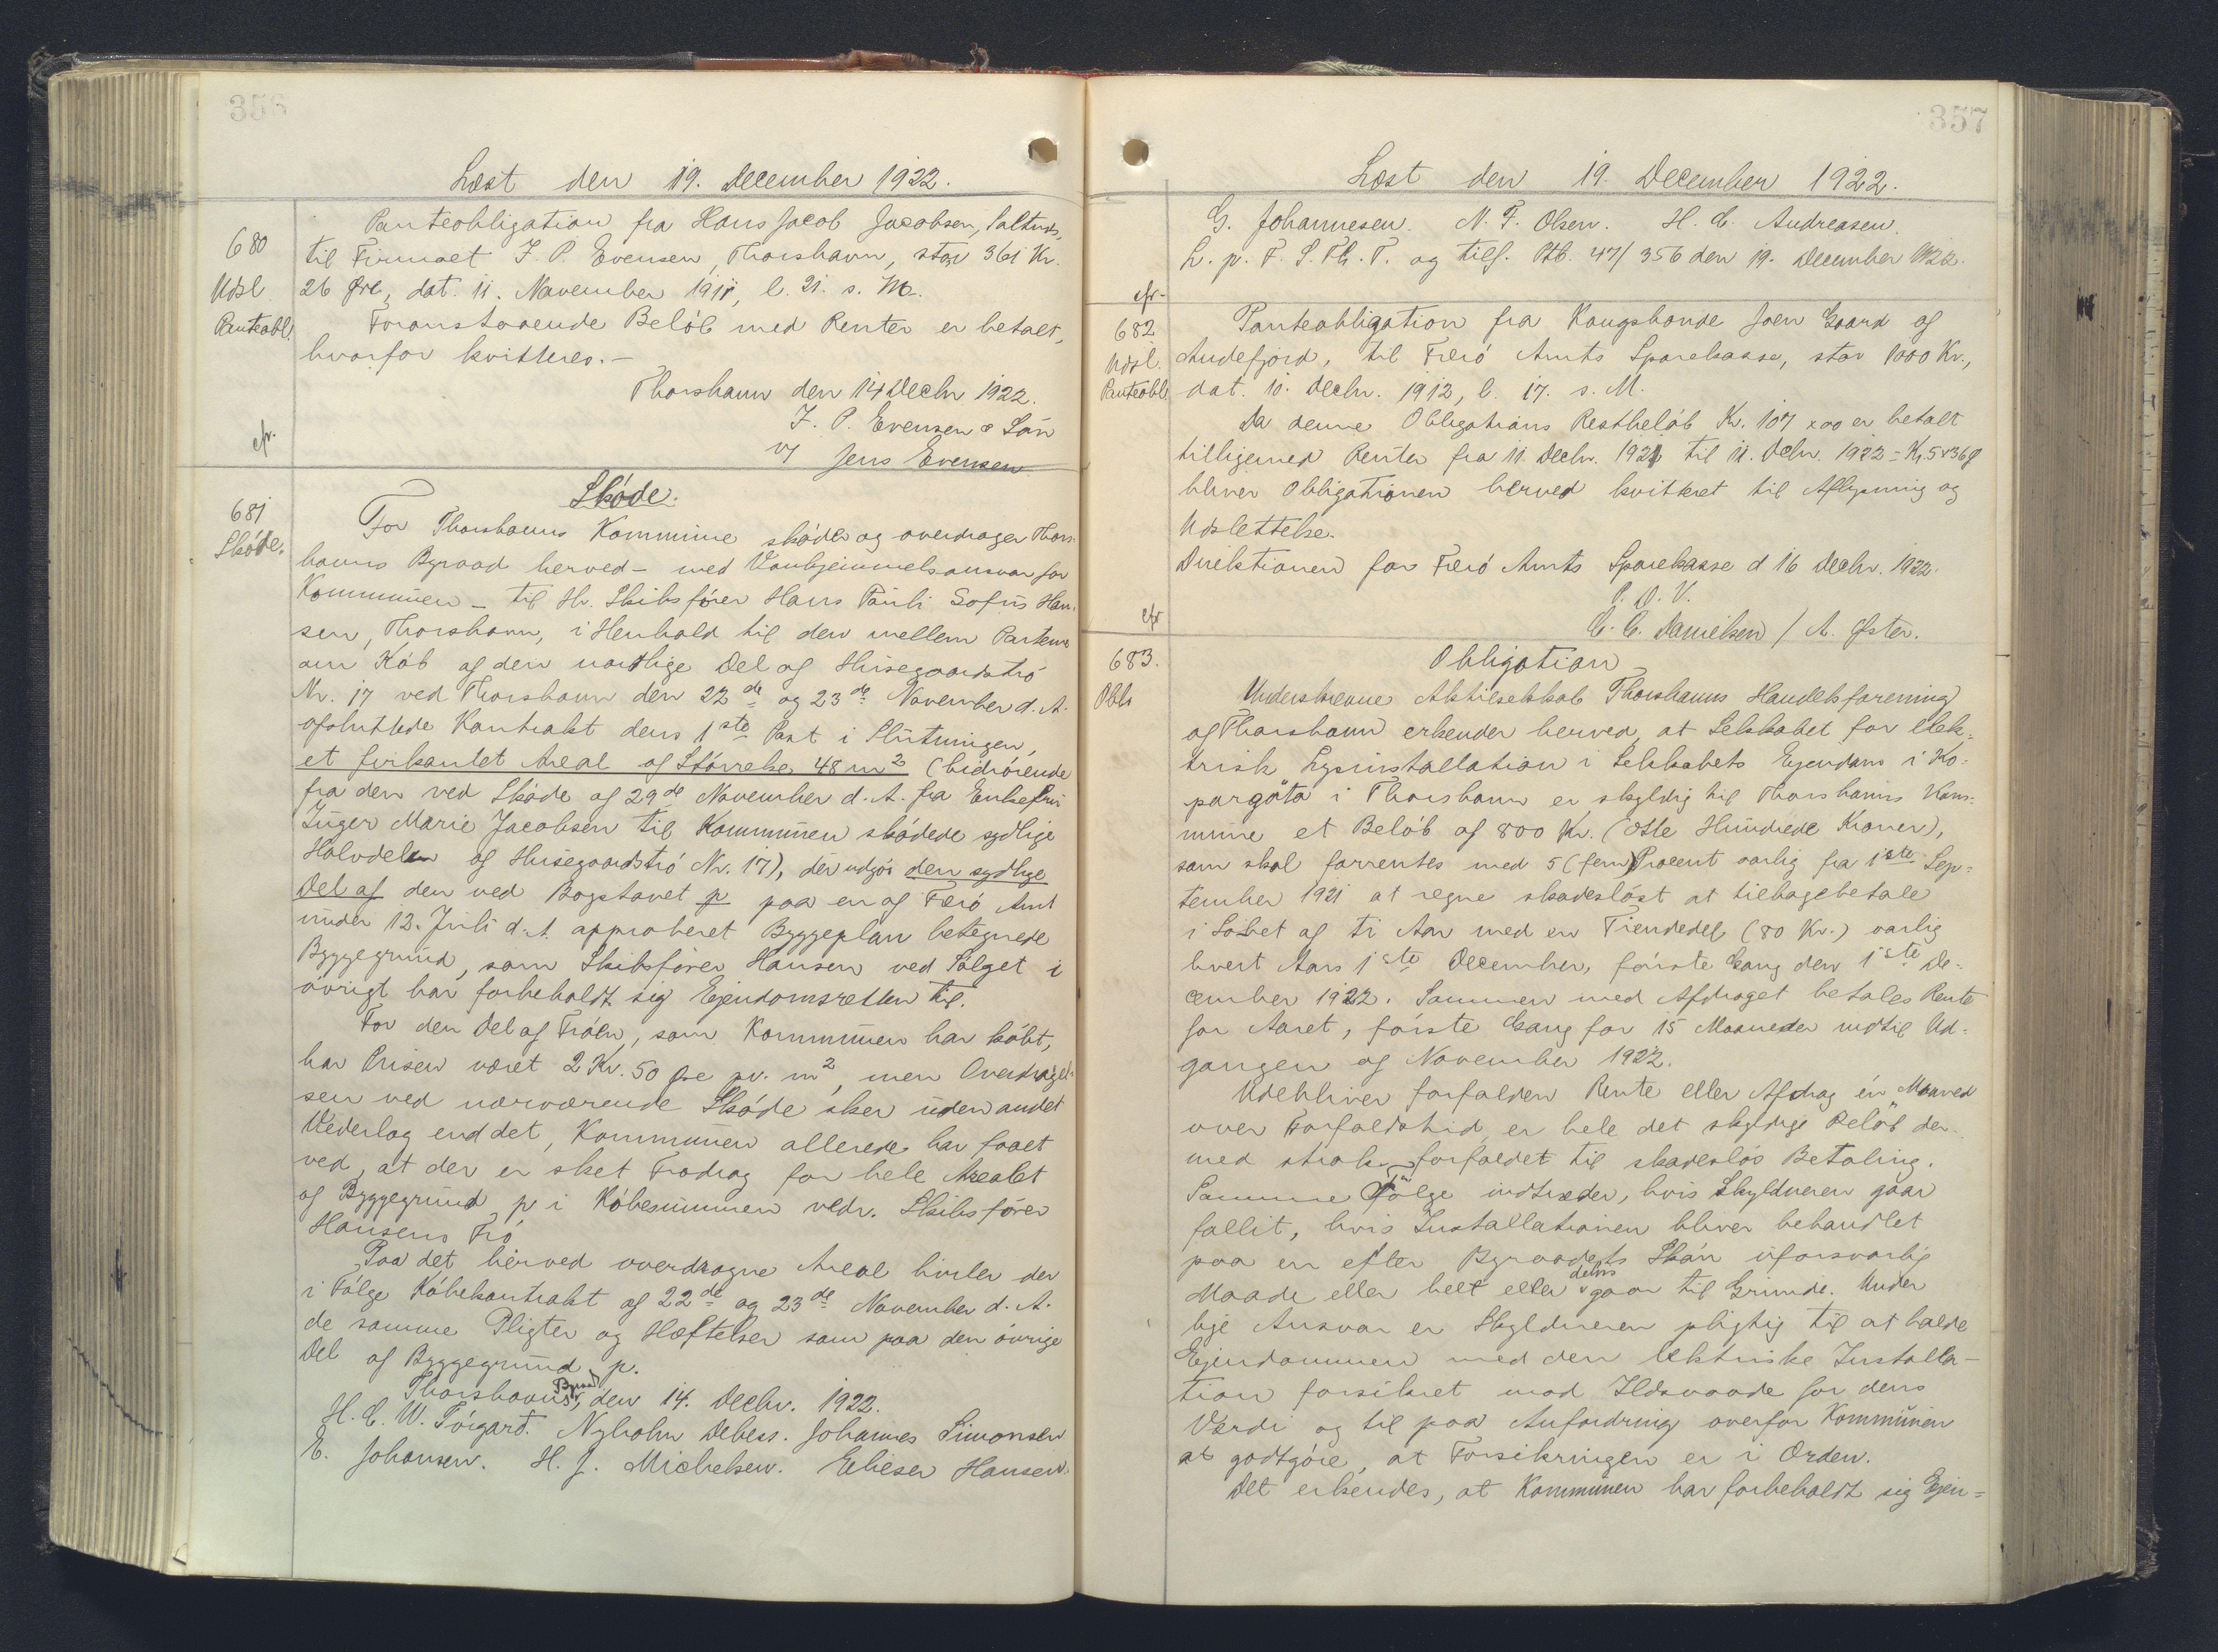 356
Læst den 19. December 1922.
680
Udsl.
Panteobl.
Panteobligation fra Hans Jacob Jacobsen, Saltnæs,
til Firmaet J. P. Evensen, Thorshavn, stor 361 Kr.
26 Øre, dat. 11. November 1911, l. 21. s. M.
Foranstaaende Beløb med Renter er betalt,
hvorfor kvitteres. –
Thorshavn den 14 Decbr 1922.
J. P. Evensen & Søn
v/ Jens Evensen
cfr.
681
Skøde.
Skøde.
For Thorshavns Kommune skøder og overdrager Thors-
havns Byraad herved – med Vanhjemmelsansvar for
Kommunen – til Hr. Skibsfører Hans Pauli Sofus Han-
sen, Thorshavn, i Henhold til den mellem Parterne
om Køb af den nordlige Del af Husegaardstrø
Nr. 17 ved Thorshavn den 22de og 23de November d. A.
afsluttede Kontrakt dens 1ste Post i Slutningen,
et firkantet Areal af Størrelse 48 m2 (hidrørende
fra den ved Skøde af 29de November d. A. fra Enkefru
Inger Marie Jacobsen til Kommunen skødede sydlige
Halvdel af Husegaardstrø Nr. 17), der udgør den sydlige
Del af den ved Bogstavet p paa en af Færø Amt
under 12. Juli d. A. approberet Byggeplan betegnede
Byggegrund, som Skibsfører Hansen ved Salget i
øvrigt har forbeholdt sig Ejendomsretten til.
For den Del af Trøen, som Kommunen har købt,
har Prisen været 2 Kr. 50 Øre pr. m2, men Overdragel-
sen ved nærværende Skøde sker uden andet
Vederlag end det, Kommunen allerede har faaet
ved, at der er sket Fradrag for hele Arealet
af Byggegrund p i Købesummen vedr. Skibsfører
Hansens Trø
Paa det herved overdragne Areal hviler der
i Følge Købekontrakt af 22de og 23de November d. A.
de samme Pligter og Hæftelser som paa den øvrige
Del af Byggegrund p.
Thorshavns Byraad, den 14. Decbr. 1922.
H. C. W. Tórgarð. Nyholm Debess. Johannes Simonsen
E. Johansen. H. J. Michelsen. Elieser Hansen.
357
Læst den 19. December 1922.
G. Johannesen. N. F. Olsen. H. C. Andreasen.
L. p. F. S. Th. T. og tilf. Ptb. 47/356 den 19. December 1922.
cfr.
682
Udsl.
Panteobl.
Panteobligation fra Kongsbonde Joen Gaard af
Andefjord, til Færø Amts Sparekasse, stor 1000 Kr.,
dat. 11. Decbr. 1912, l. 17. s. M.
Da denne Obligations Restbeløb Kr. 107 x 00 er betalt
tilligemed Renter fra 11. Decbr. 1921 til 11. Decbr. 1922 = Kr. 5 x 36 Ø
bliver Obligationen herved kvitteret til Aflysning og
Udslettelse.
Direktionen for Færø Amts Sparekasse d 16 Decbr. 1922.
P. D. V.
C. C. Danielsen / A. Øster.
cfr
683.
Obl.
Obligation
Underskrevne Aktieselskab Thorshavns Handelsforening
af Thorshavn erkender herved, at Selskabet for elek-
trisk Lysinstallation i Selskabets Ejendom i Ko-
pargøta i Thorshavn er skyldig til Thorshavns Kom-
mune et Beløb af 800 Kr. (Otte Hundrede Kroner),
som skal forrentes med 5 (fem) Procent aarlig fra 1ste Sep-
tember 1921 at regne skadesløst at tilbagebetale
i Løbet af ti Aar med en Tiendedel (80 Kr.) aarlig
hvert Aars 1ste December, første Gang den 1ste De-
cember 1922. Sammen med Afdraget betales Rente
for Aaret, første Gang for 15 Maaneder indtil Ud-
gangen af November 1922.
Udebliver forfalden Rente eller Afdrag én Maaned
over Forfaldstid, er hele det skyldige Beløb der-
med straks forfaldet til skadesløs Betaling.
Samme Følge indtræder, hvis Skyldneren gaar
fallit, hvis Installationen bliver behandlet
paa en efter Byraadets Skøn uforsvarlig
Maade eller helt eller delvis gaar til Grunde. Under
lige Ansvar er Skyldneren pligtig til at holde
Ejendommen med den elektriske Installa-
tion forsikret mod Ildsvaade for dens
Værdi og til paa Anfordring overfor Kommunen
at godtgøre, at Forsikringen er i Orden.
Det erkendes, at Kommunen har forbeholdt sig Ejen-